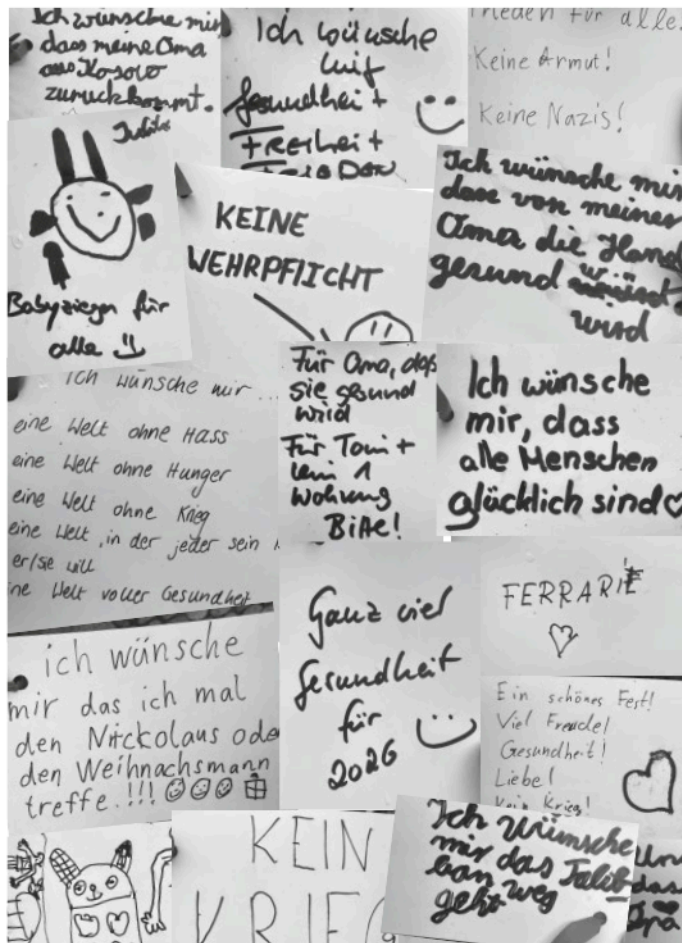 Ich wünsche mir
dass meine Oma
aus Kosovo
zurückkommt.
Ich wünsche
Gesundheit +
Freiheit +
Frieden für alle.
Keine Armut!
Keine Nazis!
Babyziegen für
alle
KEINE
WEHRPFLICHT
Ich wünsche mir
dass von meiner
Oma die Hand
gesund
wird
Ich wünsche mir...
eine Welt ohne Hass
eine Welt ohne Hunger
eine Welt ohne Krieg
eine Welt, in der jeder sein
er/sie will
ne Welt voller Gesundheit
Für Oma, daß
sie gesund
wird
Für Tomi +
Wohnung
Bitte!
Ich wünsche
mir, dass
alle Menschen
glücklich sind
ich wünsche
mir das ich mal
den Nickolaus ode
den Weihnachsmann
treffe.!!!
Ganz viel
Gesundheit
für
2026
FERRARIE
Ein schönes Fest!
Viel Freude!
Gesundheit!
Liebe!
Kein Krieg!
KEIN
KRIEG
Ich wünsche
mir das Talib
ban weg
geht